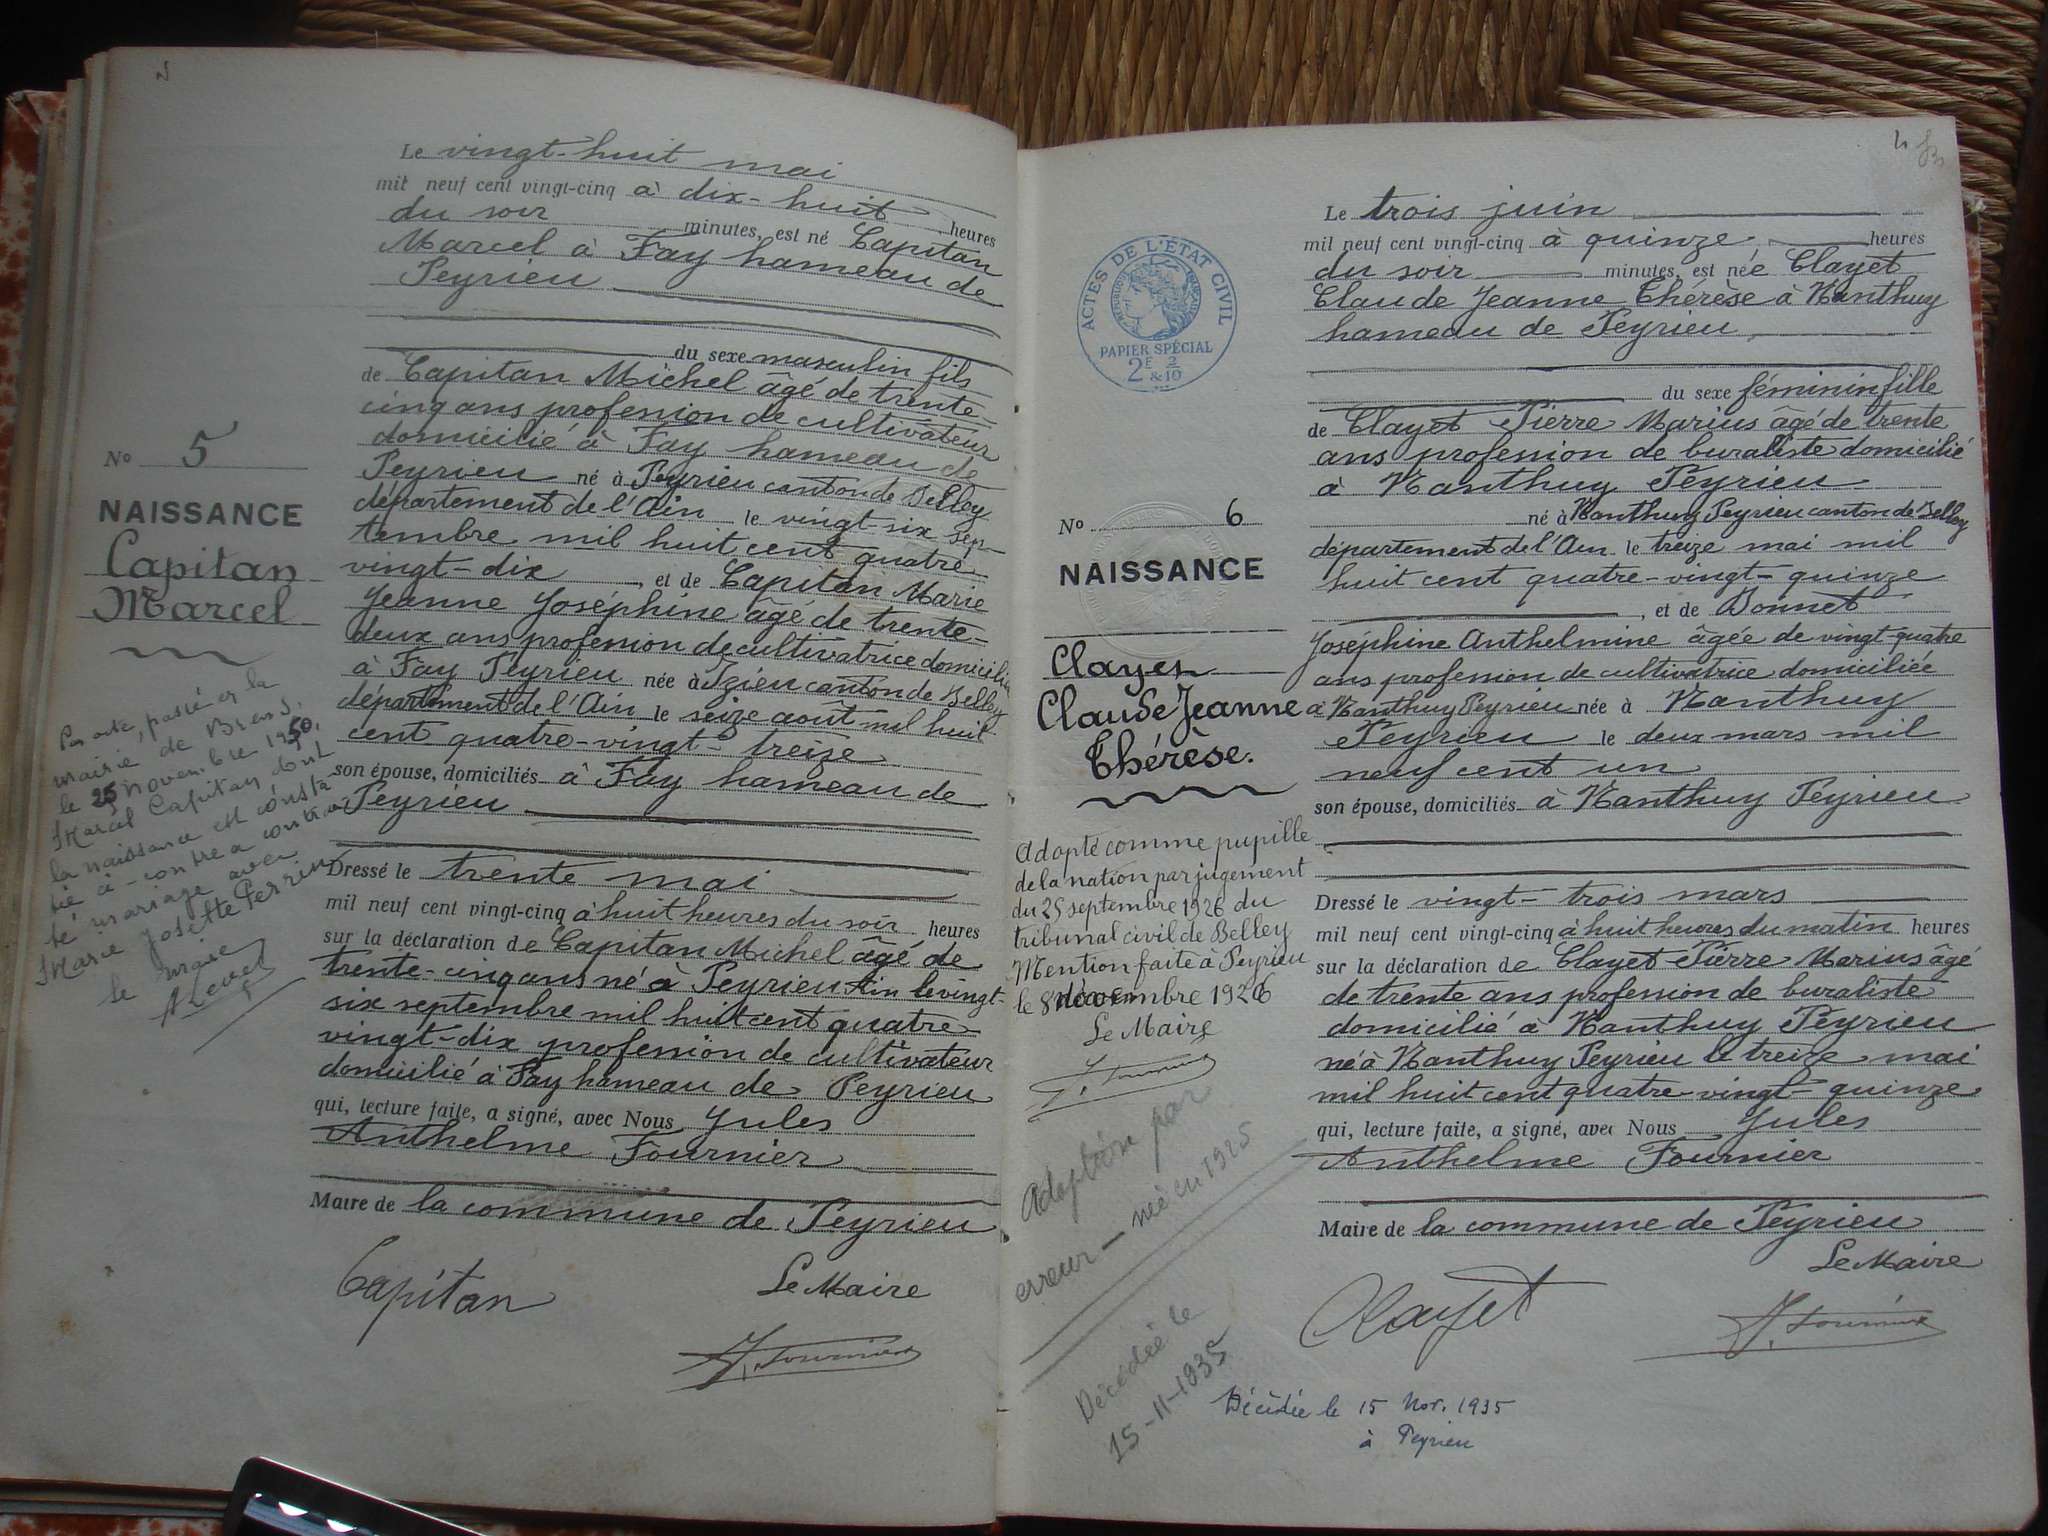 Le vingt-huit mai
mil neuf cent vingt-cinq à dix-huit heures
du soir minutes, est né Capitan
Marcel à Fay hameau de
Peyrieu
du sexe masculin fils
de Capitan Michel âgé de trente
cinq ans profession de cultivateur
domicilié à Fay hameau de
Peyrieu né à Peyrieu canton de Belley
département de l'Ain le vingt-six sep-
tembre mil huit cent quatre
vingt-dix, et de Capitan Marie
Jeanne Joséphine âgé de trente-
deux ans profession de cultivatrice domicilié
à Fay Peyrieu née à Izieu canton de Belley
département de l'Ain le seize août mil huit
cent quatre-vingt-treize
son épouse, domiciliés à Fay hameau de
Peyrieu
Dressé le trente mai
mil neuf cent vingt-cinq à huit heures du soir heures
sur la déclaration de Capitan Michel âgé de
trente-cinq ans né à Peyrieu Ain le vingt-
six septembre mil huit cent quatre
vingt-dix profession de cultivateur
domicilié à Fay hameau de Peyrieu
qui, lecture faite, a signé, avec Nous Jules
Anthelme Fournier
Maire de la commune de Peyrieu
Le Maire
Capitan
J. Fournier
No 5
NAISSANCE
Capitan
Marcel
Par acte, passé en la
mairie de Brens,
le 25 novembre 1950,
Marcel Capitan dont
la naissance est consta
tée ci-contre a contrac
té mariage avec
Marie Josette Perrin
le maire
4
Le trois juin
mil neuf cent vingt-cinq à quinze heures
du soir minutes, est née Clayet
Claude Jeanne Thérèse à Nanthuy
hameau de Peyrieu
du sexe féminin fille
de Clayet Pierre Marius âgé de trente
ans profession de buraliste domicilié
à Nanthuy Peyrieu
né à Nanthuy Peyrieu canton de Belley
département de l'Ain le treize mai mil
huit cent quatre-vingt-quinze
, et de Bonnet
Joséphine Anthelmine âgée de vingt-quatre
ans profession de cultivatrice domiciliée
à Nanthuy Peyrieu née à Nanthuy
Peyrieu le deux mars mil
neuf cent un
son épouse, domiciliés à Nanthuy Peyrieu
Dressé le vingt-trois mars
mil neuf cent vingt-cinq à huit heures du matin heures
sur la déclaration de Clayet Pierre Marius âgé
de trente ans profession de buraliste
domicilié à Nanthuy Peyrieu
né à Nanthuy Peyrieu le treize mai
mil huit cent quatre vingt-quinze
qui, lecture faite, a signé, avec Nous Jules
Anthelme Fournier
Maire de la commune de Peyrieu
Le Maire
Clayet
J. Fournier
Décédée le 15 Nov. 1935
à Peyrieu
ACTES DE L'ETAT CIVIL
PAPIER SPÉCIAL
2F 2/10
&
No 6
NAISSANCE
Clayet
Claude Jeanne
Thérèse.
Adopté comme pupille
de la nation par jugement
du 25 septembre 1926 du
tribunal civil de Belley
Mention faite à Peyrieu
le 8 1926
Le Maire
J. Fournier
Adoption par
erreur - née en 1925
Décédée le
15-11-1935